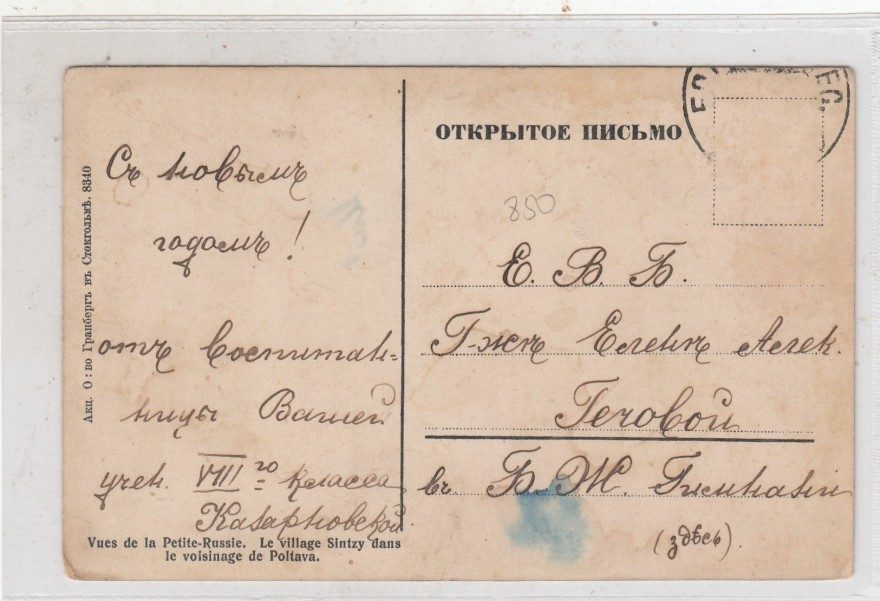 Съ новымъ
годомъ!
отъ воспитан=
ницы Вашей
учен. VIII го класса
Vues de la Petite-Russie. Le village Sintzy dans
le voisinage de Poltava.
Акц. О:во Гранбергъ въ Стокгольмѣ. 8340
ОТКРЫТОЕ ПИСЬМО
850
Е. В. Б.
Г-жѣ Еленѣ Алек.
Гечовой
въ Б. Ж. Гимназіи
(здѣсь)